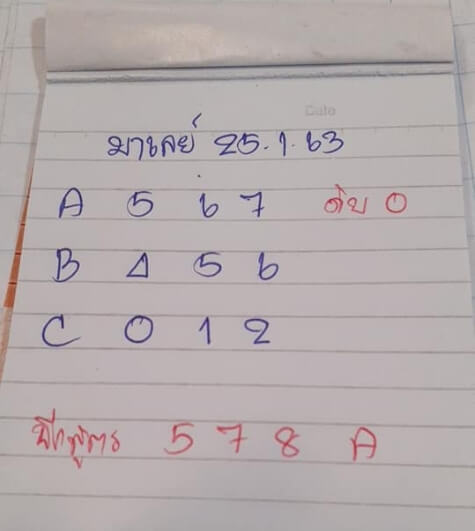 Date
มาเลย์ 25.1.63
A 5 6 7 ดับ 0
B 4 5 6
C 0 1 2
ฉีกสูตร 5 7 8 A